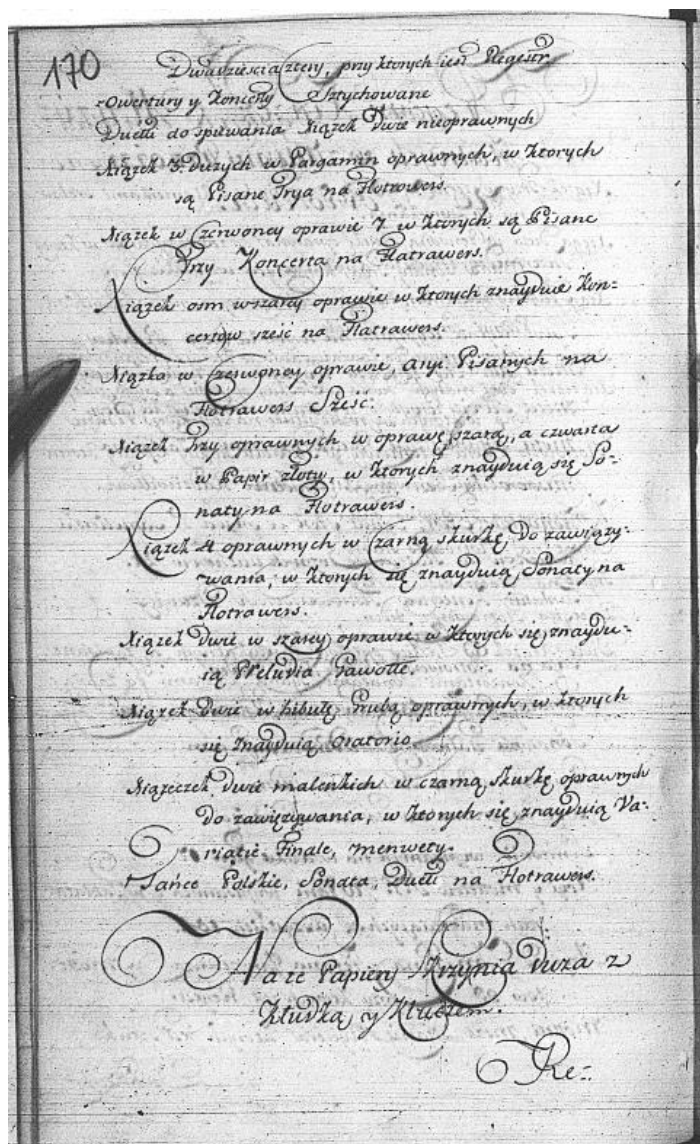 170
Dwadziescia cztery, przy ktorych iest Regestr
Owertury y Koncerty Sztychowane
Duetti do spiwania Xiązek dwie nieoprawnych
Xiązek 3. duzych w Pargamin oprawnych, w ktorych
są Pisane Trya na Flotrowers.
Xiązek w Czerwoney oprawie 7 w ktorych są Pisane
Trzy Koncerta na Flatrawers.
Xiązek osm w szarey oprawie w ktorych znayduie Kon=
certow sześć na Flatrawers.
Xiązka w Czerwoney oprawie, Aryi Pisanych na
Flotrawers Sześć.
Xiązek Trzy oprawnych w oprawę szarą, a czwarta
w Papir złoty, w ktorych znayduią się So=
naty na Flotrawers.
Xiązek 4 oprawnych w Czarną skurkę do zawiązy=
wania, w ktorych się znayduią Sonaty na
Flotrawers.
Xiązek dwie w szarey oprawie w ktorych się znaydu=
ią Preludia Gawotte.
Xiązek dwie w bibułę grubą oprawnych, w ktorych
się znayduią Oratorio
Xiązeczek dwie maleńkich w czarną skurkę oprawnych
do zawięzywania, w ktorych się znayduią Va=
riatie Finale, menwety.
Tańce Polskie, Sonata, Duetti na Flotrawers.
Na te Papiery Skrzynia duza z
Kłudką y Kluczem.
Re=